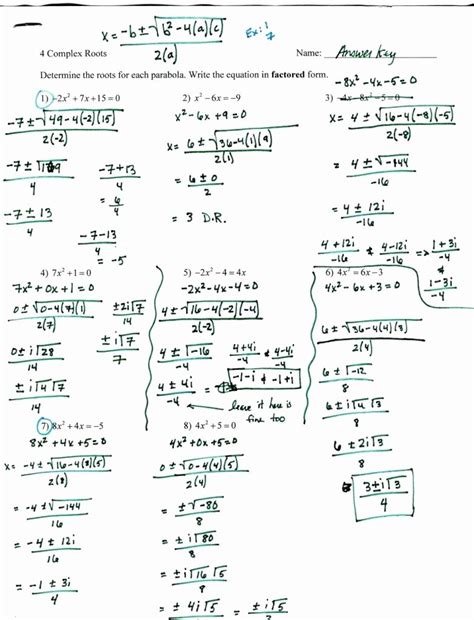 x = -b ± √b² - 4(a)(c)
2(a)
Ex: 1
7
4 Complex Roots
Name: Answer Key
Determine the roots for each parabola. Write the equation in factored form.
1) -2x² + 7x + 15 = 0
-7 ± √49 - 4(-2)(15)
2(-2)
-7 ± √169
4
-7 ± 13
4
-7 + 13
4
= 6
4
-7 - 13
4
= -5
2) x² - 6x = -9
x² - 6x + 9 = 0
x = 6 ± √36 - 4(1)(9)
2(1)
= 6 ± 0
2
= 3 D.R.
-8x² - 4x - 5 = 0
3) -4x - 8x² - 5 = 0
x = 4 ± √16 - 4(-8)(-5)
2(-8)
= 4 ± √-144
-16
= 4 ± 12i
-16
4 + 12i
-16
& 4 - 12i
-16
= 1 + 3i
-4
& 1 - 3i
-4
4) 7x² + 1 = 0
7x² + 0x + 1 = 0
0 ± √0 - 4(7)(1)
2(7)
0 ± i√28
14
± i√4√7
14
± 2i√7
14
± i√7
7
5) -2x² - 4 = 4x
-2x² - 4x - 4 = 0
4 ± √16 - 4(-2)(-4)
2(-2)
4 ± √-16
-4
4 ± 4i
-4
4 + 4i
-4
& 4 - 4i
-4
-1 - i & -1 + i
leave it here is
fine too
6) 4x² = 6x - 3
4x² - 6x + 3 = 0
6 ± √36 - 4(4)(3)
2(4)
6 ± √-12
8
6 ± i√4√3
8
6 ± 2i√3
8
3 ± i√3
4
7) 8x² + 4x = -5
8x² + 4x + 5 = 0
x = -4 ± √16 - 4(8)(5)
2(8)
= -4 ± √-144
16
= -4 ± 12i
16
= -1 ± 3i
4
8) 4x² + 5 = 0
4x² + 0x + 5 = 0
0 ± √0 - 4(4)(5)
2(4)
= ± √-80
8
= ± i√80
8
= ± i√16√5
8
= ± 4i√5 = ± i√5